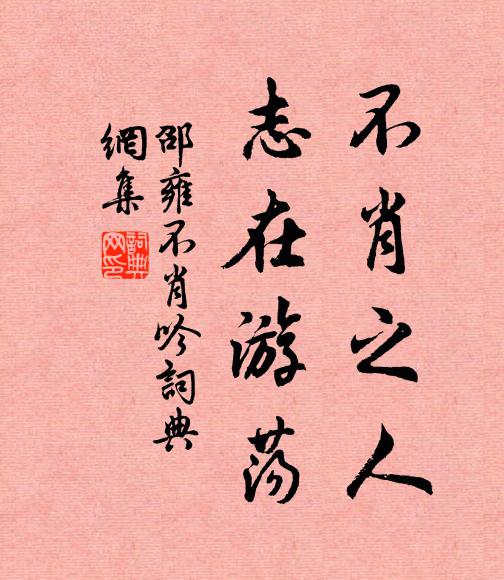 不肖之人
志在游荡
邵雍不肖吟詞典
網集
詞典
网印